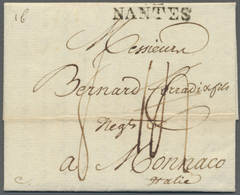 16
NANTES
Messieurs
Bernard & fils
Negts
a Monnaco
Italie
C.